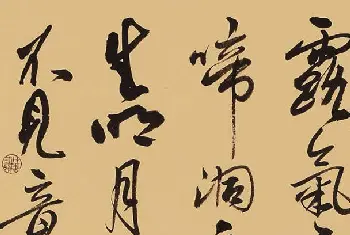 露氣
啼洞
生明月
不見竟